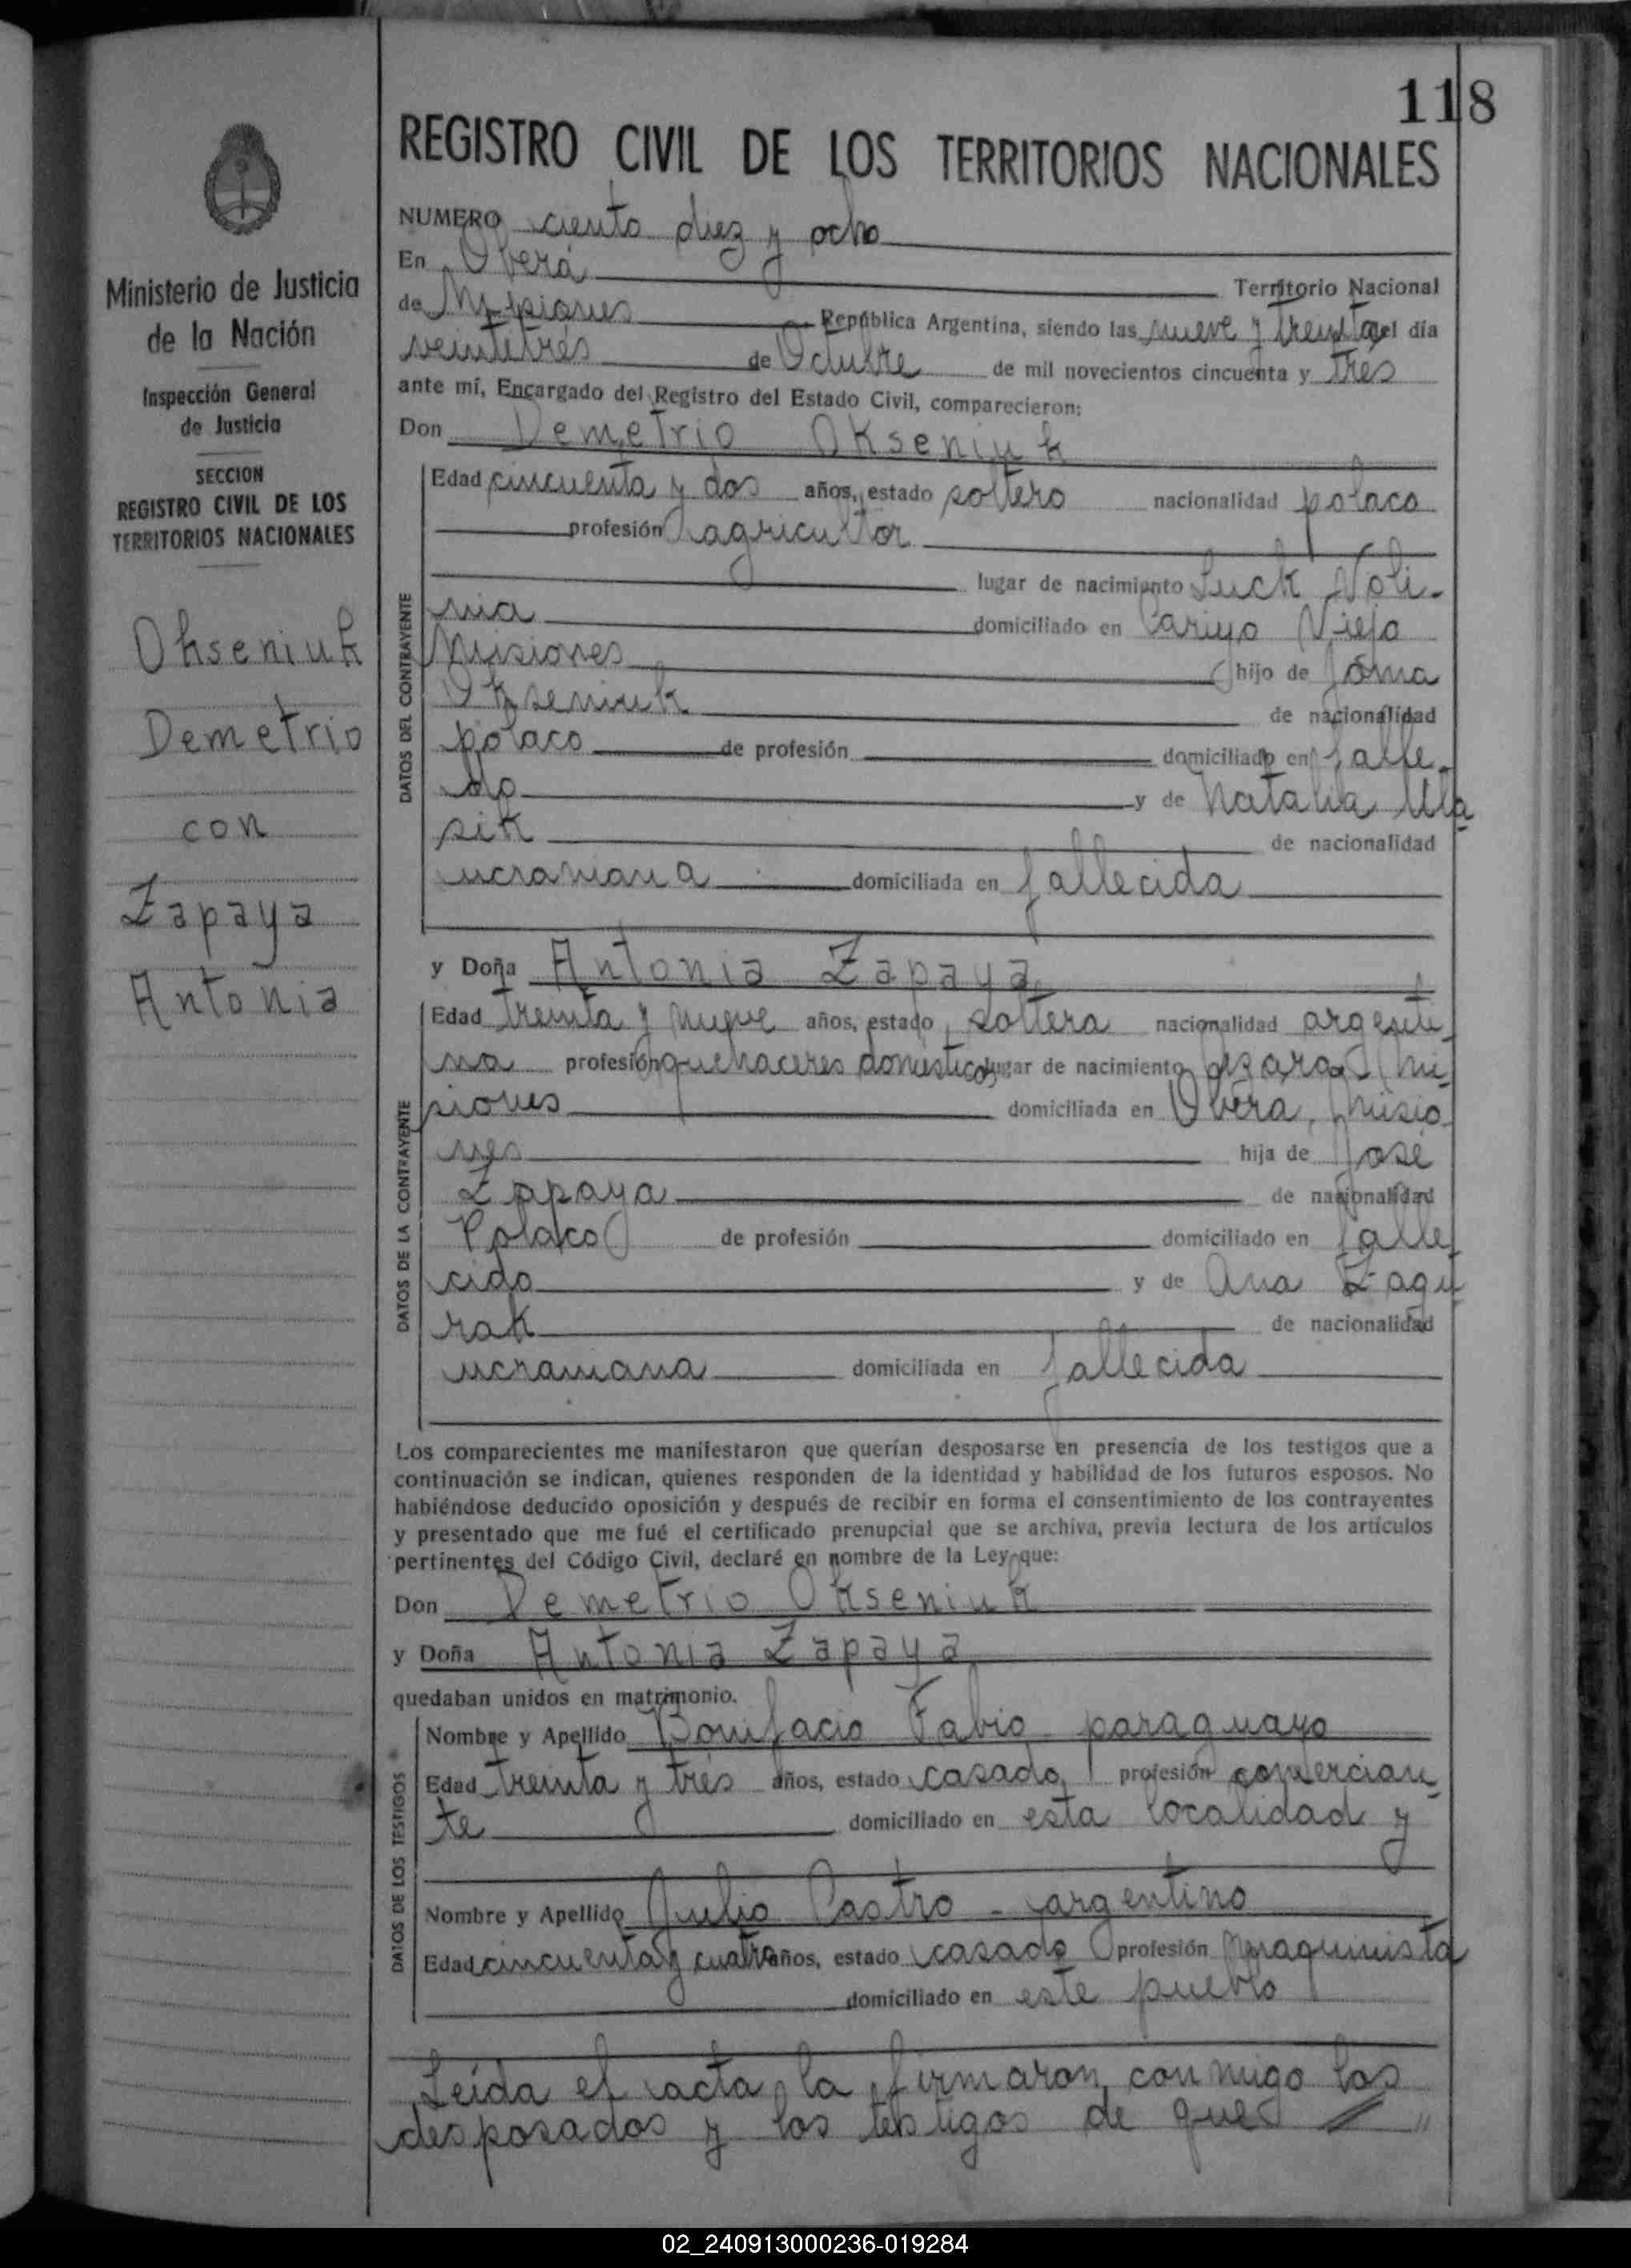 118
REGISTRO CIVIL DE LOS TERRITORIOS NACIONALES
Ministerio de Justicia
de la Nación
Inspección General
de Justicia
SECCION
REGISTRO CIVIL DE LOS
TERRITORIOS NACIONALES
Okseniuk
Demetrio
con
Zapaya
Antonia
NUMERO ciento diez y ocho
En Oberá Territorio Nacional
de Misiones República Argentina, siendo las nueve y treinta del día
veintitrés de Octubre de mil novecientos cincuenta y tres
ante mí, Encargado del Registro del Estado Civil, comparecieron:
Don Demetrio Okseniuk
DATOS DEL CONTRAYENTE
Edad cincuenta y dos años, estado soltero nacionalidad polaco
profesión agricultor
lugar de nacimiento Luck Voli-
nia domiciliado en Viejo
Misiones hijo de
Okseniuk de nacionalidad
polaco de profesión domiciliado en falle-
do y de Natalia Ula-
sik de nacionalidad
ucraniana domiciliada en fallecida
y Doña Antonia Zapaya
DATOS DE LA CONTRAYENTE
Edad treinta y nueve años, estado soltera nacionalidad argenti-
na profesión quehaceres domesticos lugar de nacimiento Azara Mi-
siones domiciliada en Oberá, Misio-
nes hija de José
Zapaya de nacionalidad
Polaco de profesión domiciliado en falle-
cido y de Ana Zagu-
rak de nacionalidad
ucraniana domiciliada en fallecida
Los comparecientes me manifestaron que querían desposarse en presencia de los testigos que a
continuación se indican, quienes responden de la identidad y habilidad de los futuros esposos. No
habiéndose deducido oposición y después de recibir en forma el consentimiento de los contrayentes
y presentado que me fué el certificado prenupcial que se archiva, previa lectura de los artículos
pertinentes del Código Civil, declaré en nombre de la Ley que:
Don Demetrio Okseniuk
y Doña Antonia Zapaya
quedaban unidos en matrimonio.
DATOS DE LOS TESTIGOS
Nombre y Apellido Bonifacio Fabio paraguayo
Edad treinta y tres años, estado casado profesión comercian-
te domiciliado en esta localidad y
Nombre y Apellido Julio Castro - argentino
Edad cincuenta y cuatro años, estado casado profesión maquinista
domiciliado en este pueblo
Leída el acta, la firmaron conmigo los
desposados y los testigos de que
02_240913000236-019284